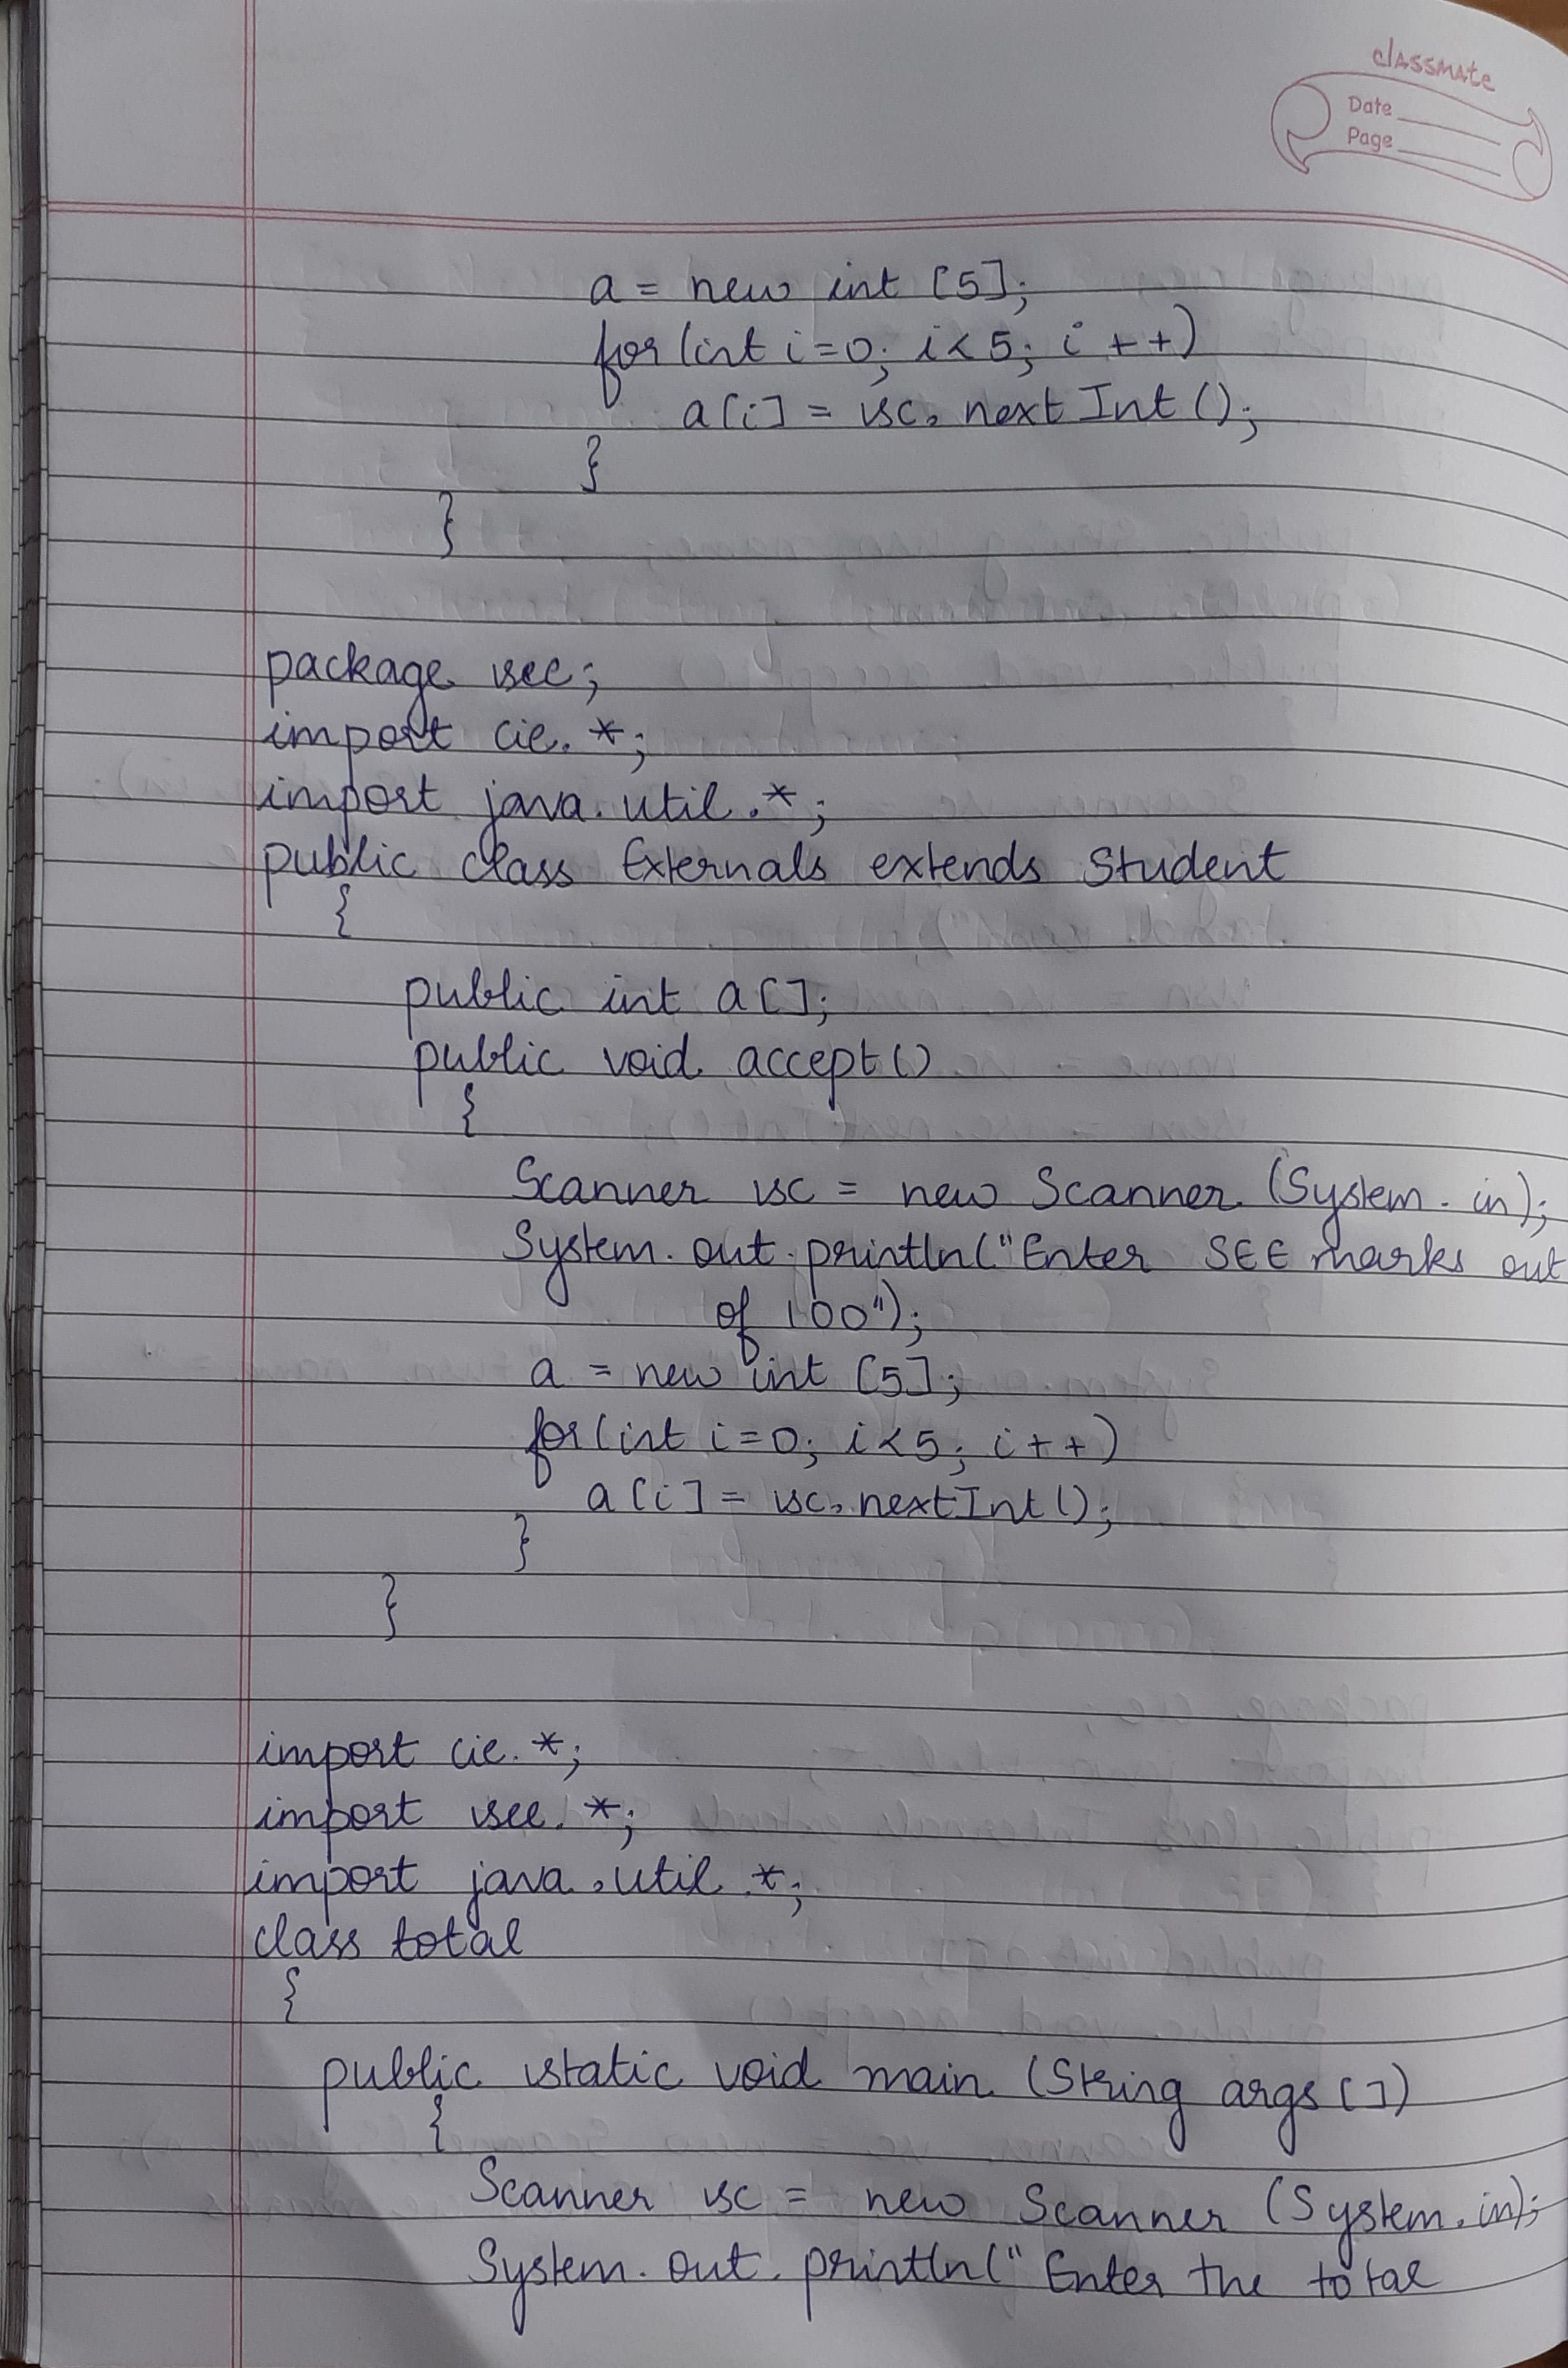 classmate
Date
Page
a = new int [5];
for (int i=0; i<5; i++)
a[i] = sc.nextInt();
}
}
package see;
import cie.*;
import java.util.*;
public class Externals extends Student
{
public int a[];
public void accept()
{
Scanner sc = new Scanner (System.in);
System.out.println("Enter SEE marks out
of 100");
a = new int [5];
for (int i=0; i<5; i++)
a[i] = sc.nextInt();
}
}
import cie.*;
import see.*;
import java.util.*;
class total
{
public static void main (String args[])
{
Scanner sc = new Scanner (System.in);
System.out.println("Enter the total